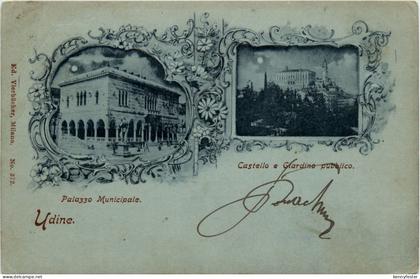 Ed. Vierbücher, Milano, No. 372.
Palazzo Municipale.
Castello e Giardino pubblico.
Udine.